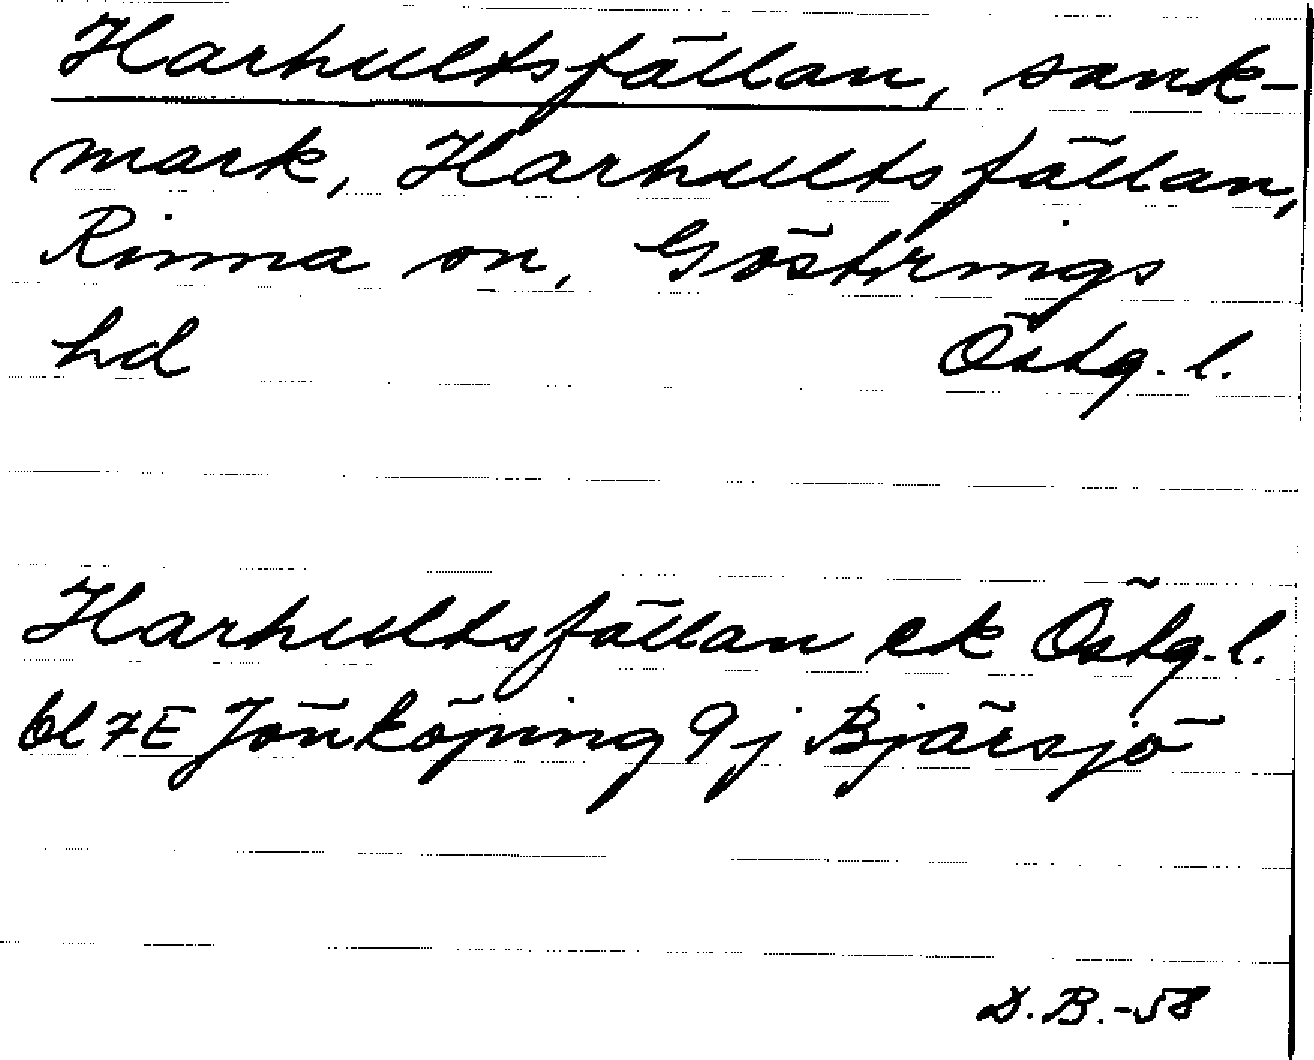 Harhultsfällan, sank-
mark, Harhultsfällan,
Rinna sn, Göstrings
hd Östg. l.
Harhultsfällan ek Östg. l.
bl 7E Jönköping 9j Bjärsjö
D.B.-58